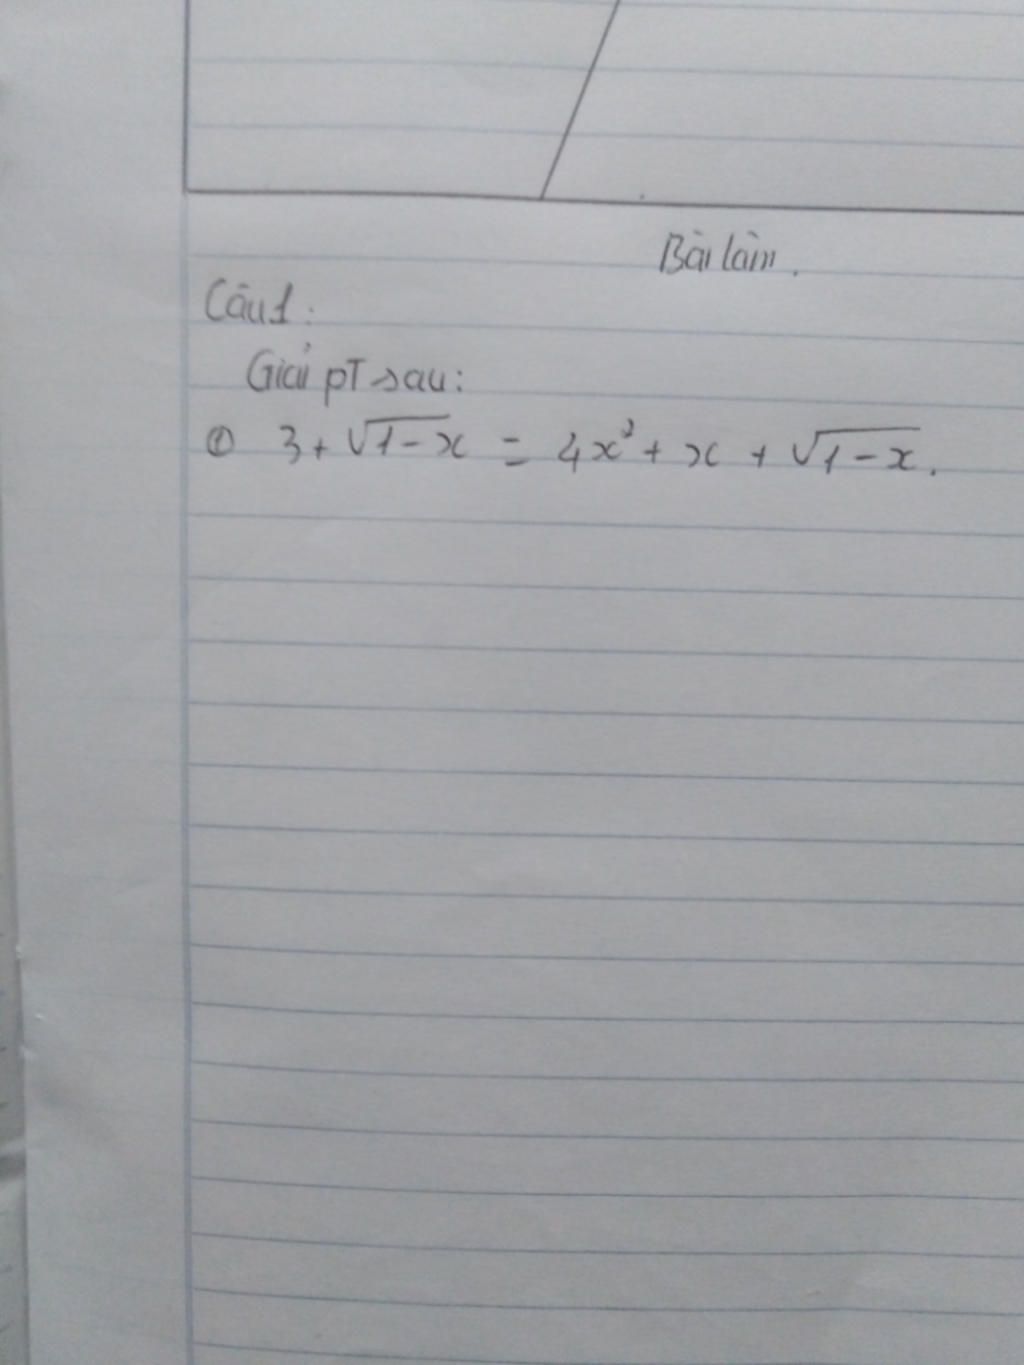 Bài làm.
Câu 1:
Giải pT sau:
① 3 + √1-x = 4x² + x + √1-x.